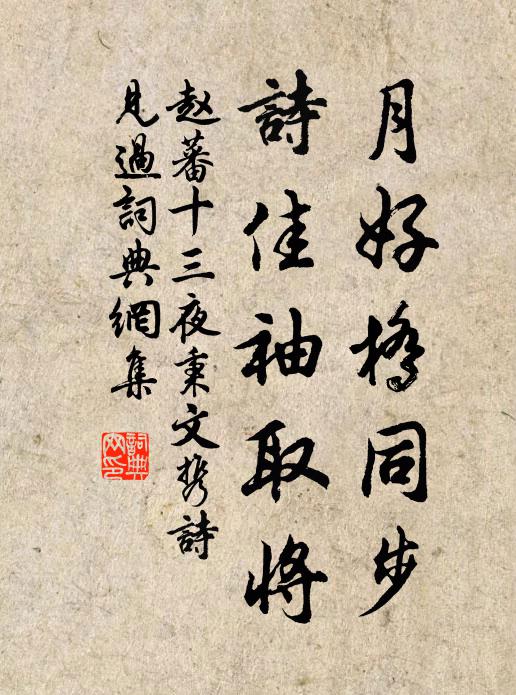 月好携同步
詩佳袖取將
赵蕃十三夜秉文携詩
見過詞典網集
詞典
网印